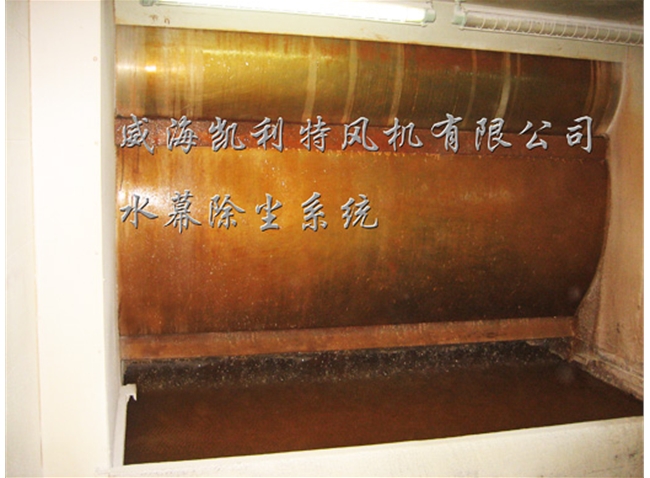 威海凯利特风机有限公司
水幕除尘系统